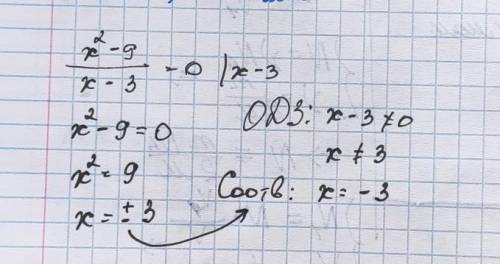 x² - 9
x - 3
= 0 | x - 3
x² - 9 = 0
x² = 9
x = ± 3
ОДЗ: x - 3 ≠ 0
x ≠ 3
Соотв: x = - 3